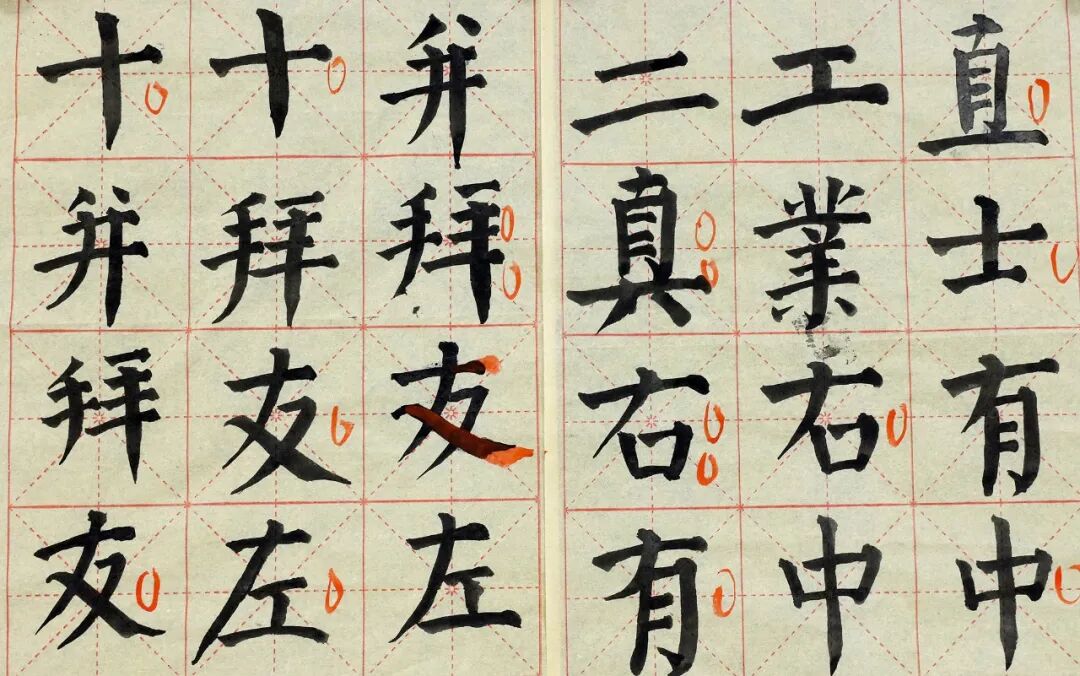 十十并
并拜拜
拜友友
友左左
二工直
真業士
右右有
有中中